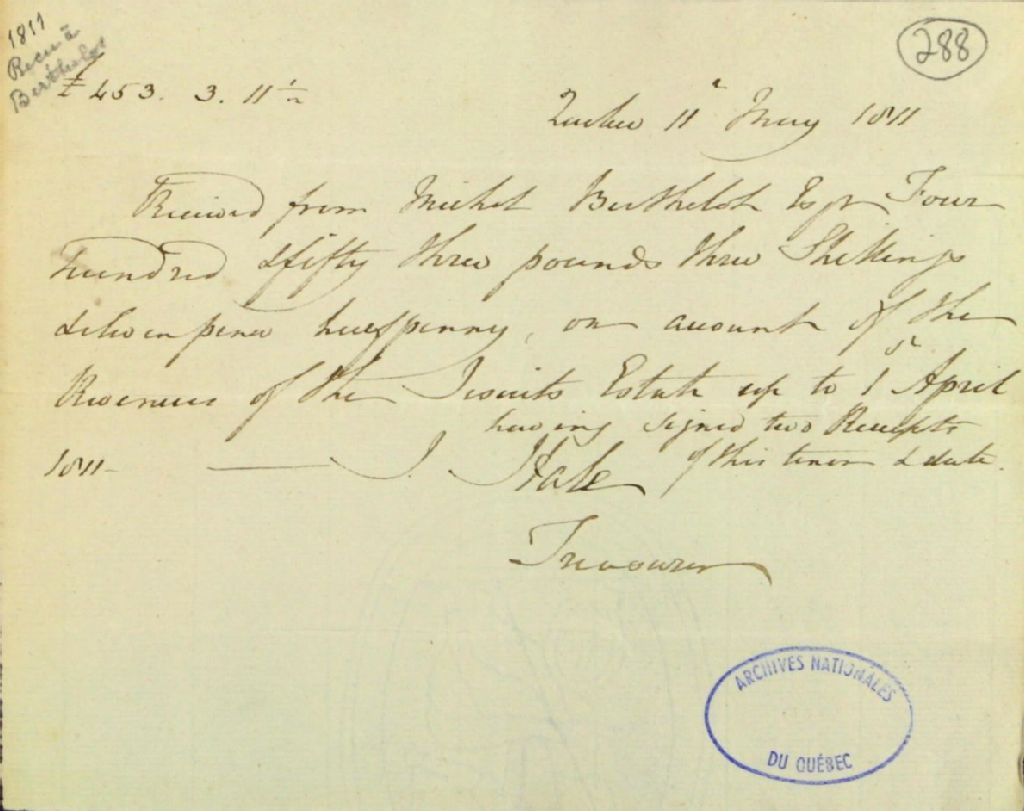 1811
Recu à
Berthelot
288
£ 453. 3. 11 ½
Quebec 11th May 1811
Received from Michel Berthelot Esqr Four
Hundred & fifty three pounds three Shillings
& eleven pence half penny, on account of the
Revenues of the Jesuits Estate up to 1st April
having signed two Receipts
of this tenor & date.
1811 — J. Hale
Treasurer
ARCHIVES NATIONALES
DU QUÉBEC